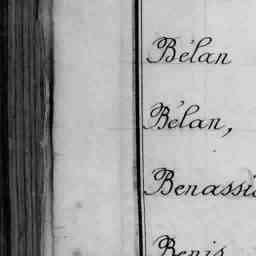 Bélan
Bélan,
Benassi
Benis